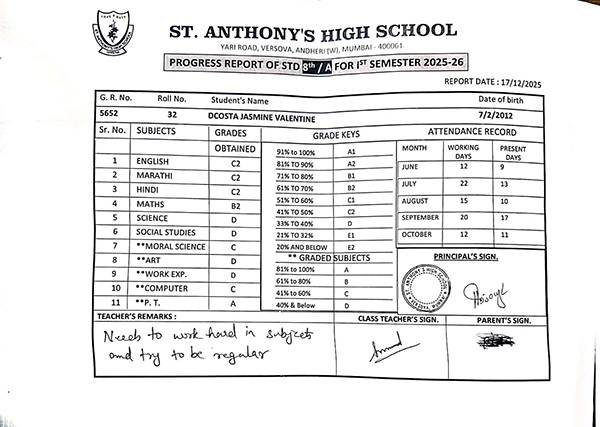 ST. ANTHONY'S HIGH SCHOOL
YARI ROAD, VERSOVA, ANDHERI (W), MUMBAI - 400061
PROGRESS REPORT OF STD 8th / A FOR IST SEMESTER 2025-26
REPORT DATE : 17/12/2025
G. R. No. Roll No. Student's Name Date of birth
5652 32 DCOSTA JASMINE VALENTINE 7/2/2012
Sr. No. SUBJECTS GRADES OBTAINED
1 ENGLISH C2
2 MARATHI C2
3 HINDI C2
4 MATHS B2
5 SCIENCE D
6 SOCIAL STUDIES D
7 **MORAL SCIENCE C
8 **ART D
9 **WORK EXP. D
10 **COMPUTER C
11 **P. T. A
GRADE KEYS
91% to 100% A1
81% TO 90% A2
71% TO 80% B1
61% TO 70% B2
51% TO 60% C1
41% TO 50% C2
33% TO 40% D
21% TO 32% E1
20% AND BELOW E2
** GRADED SUBJECTS
81% to 100% A
61% to 80% B
41% to 60% C
40% & Below D
ATTENDANCE RECORD
MONTH WORKING DAYS PRESENT DAYS
JUNE 12 9
JULY 22 13
AUGUST 15 10
SEPTEMBER 20 17
OCTOBER 12 11
PRINCIPAL'S SIGN.
ST. ANTHONY'S HIGH SCHOOL
VERSOVA, MUMBAI
TEACHER'S REMARKS :
Needs to work hard in subjects
and try to be regular
CLASS TEACHER'S SIGN.
PARENT'S SIGN.